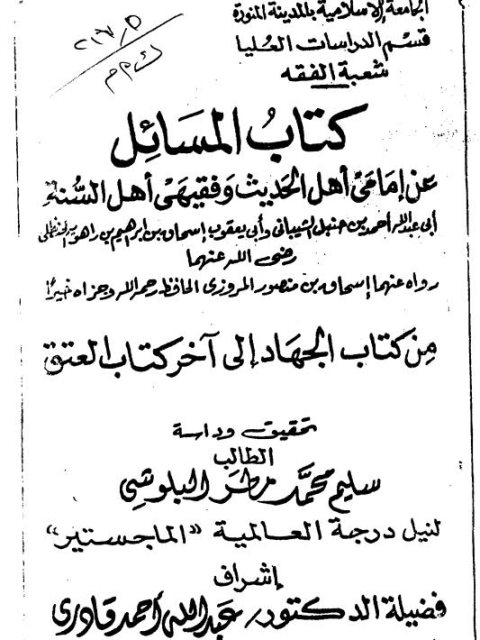 الجامعة الإسلامية بالمدينة المنورة
قسم الدراسات العليا
شعبة الفقه
كتاب المسائل
عن إمامي أهل الحديث وفقيهي أهل السنة
أبي عبدالله أحمد بن حنبل الشيباني وأبي يعقوب إسحاق بن إبراهيم بن راهويه الحنظلي
رضي الله عنهما
رواه عنهما إسحاق بن منصور المروزي الحافظ رحمه الله وجزاه خيرا
من كتاب الجهاد إلى آخر كتاب العتق
تحقيق ودراسة
الطالب
سليم محمد مطر البلوشي
لنيل درجة العالمية "الماجستير"
إشراف
فضيلة الدكتور/ عبدالله أحمد قادري